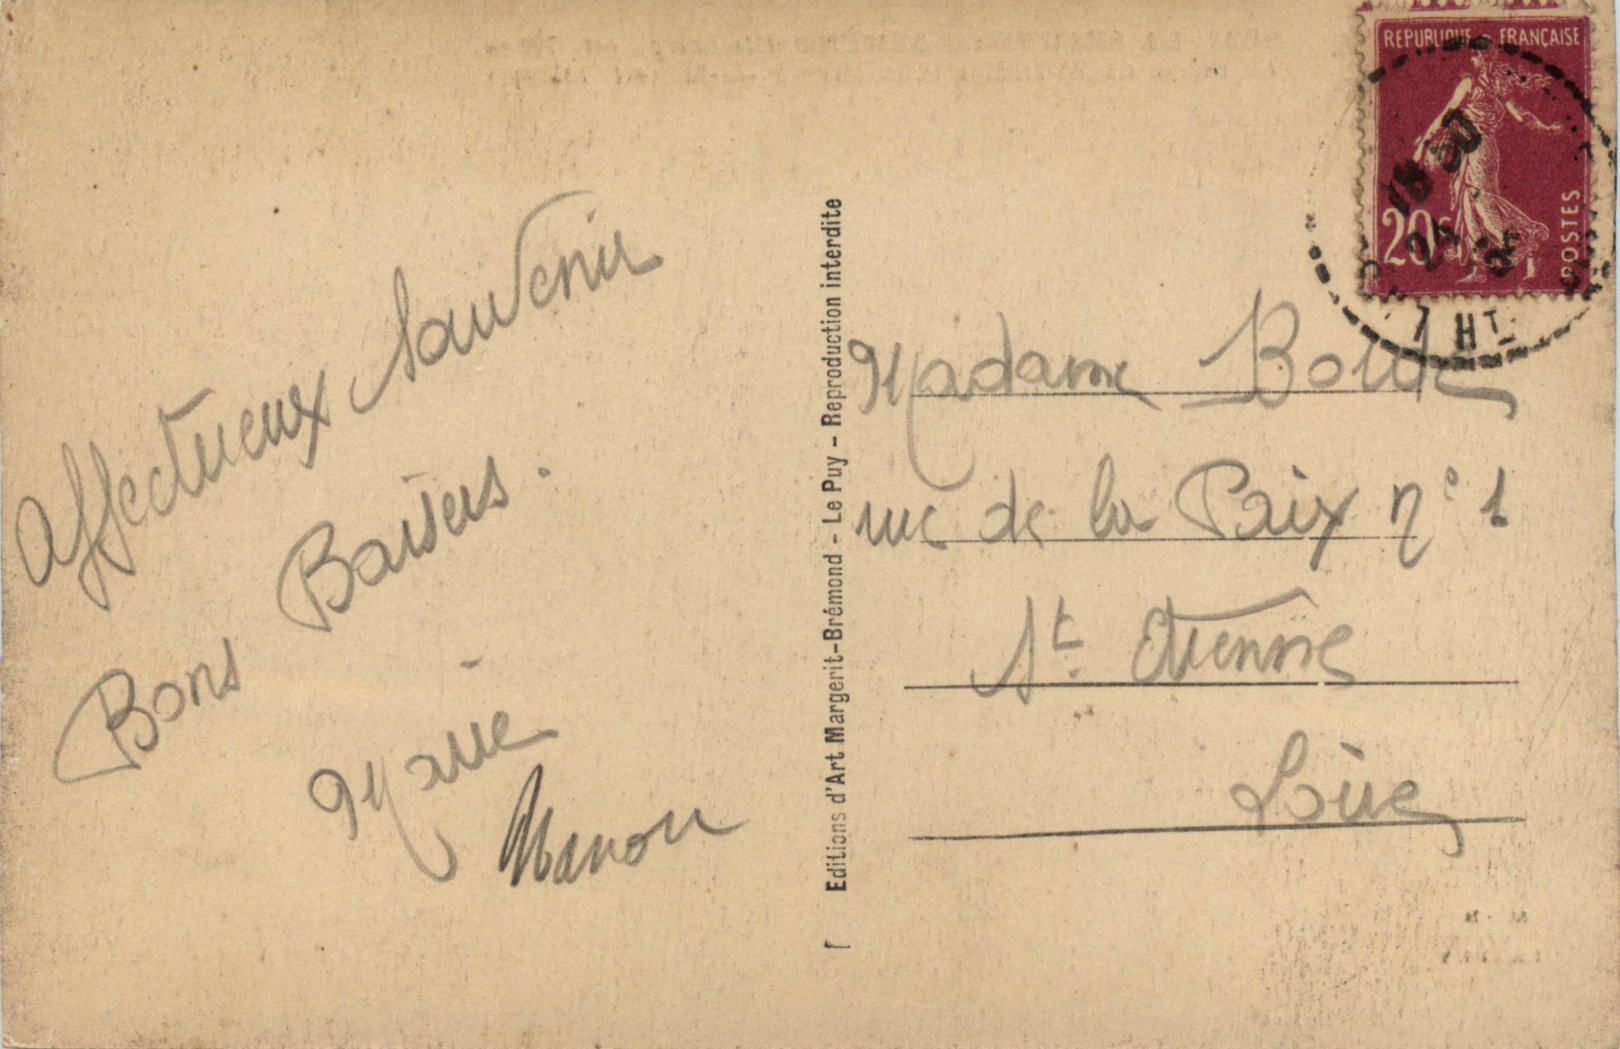 Affectueux Souvenir
Bons Baisers.
Marie
Manon
Editions d'Art Margerit-Brémond - Le Puy - Reproduction interdite
REPUBLIQUE FRANÇAISE
20c
POSTES
18 30
25
HT
Madame
rue de la Paix n° 1
St. Etienne
Loire